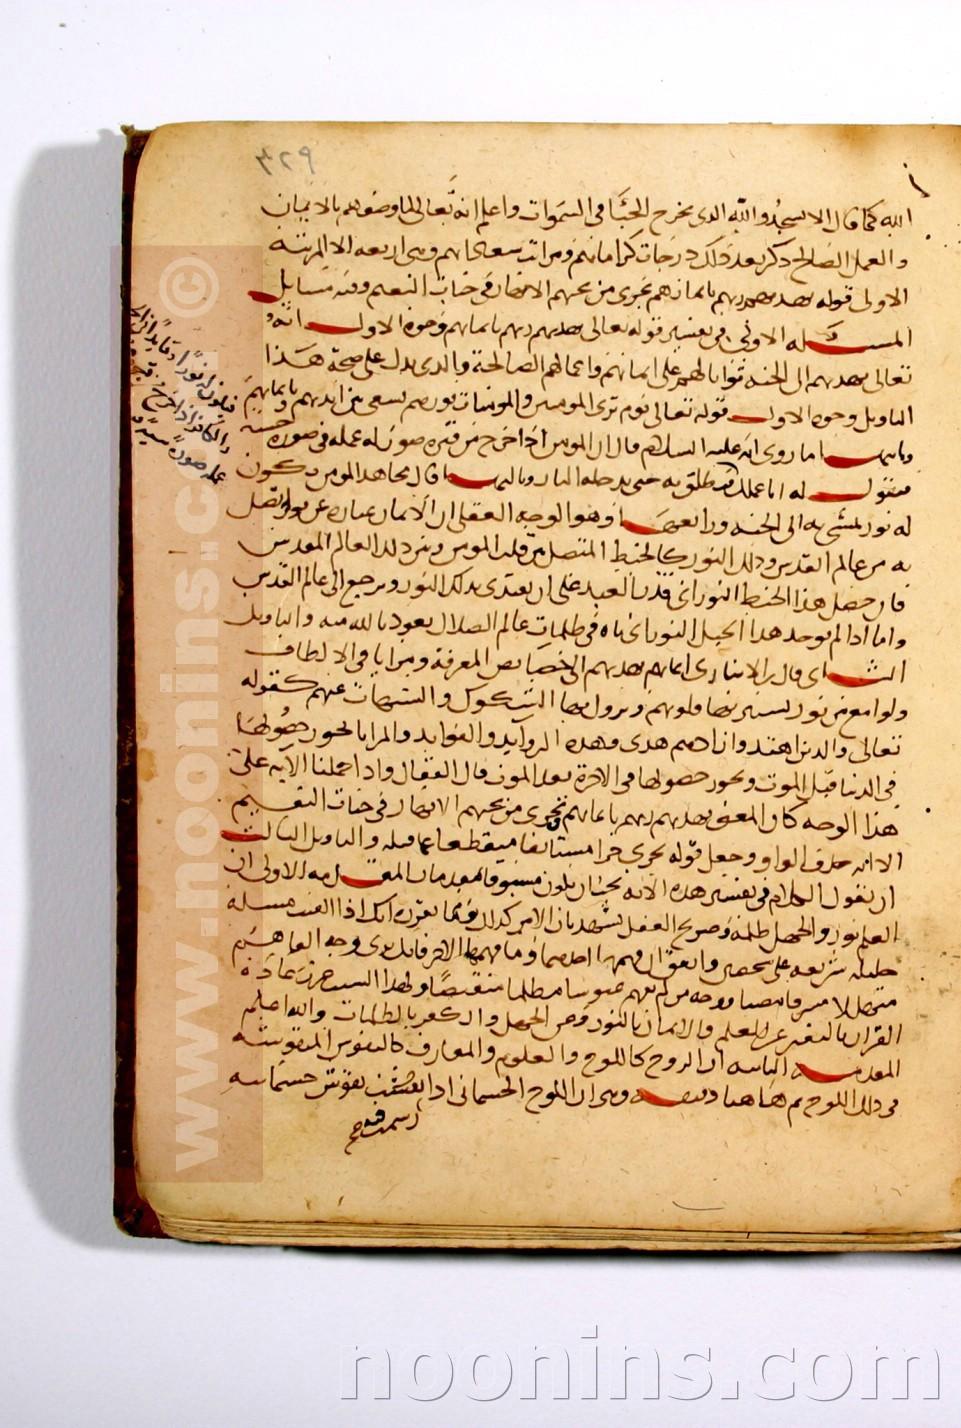 الله كما قال الا يسجدوا لله الذى يخرج الخبأ فى السموات واعلم انه تعالى لما وصفهم بالايمان
والعمل الصالح ذكر بعد ذلك درجات كراماتهم ومراتب سعاداتهم وهى اربعه الاالمرتبه
الاولى قوله يهديهم ربهم بايمانهم تجرى من تحتهم الانهار فى جنات النعيم وفيه مسايل
المسئله الاولى فى تفسير قوله تعالى يهديهم ربهم بايمانهم وجوه الاول انه
تعالى يهديهم الى الجنه ثوابا لهم على ايمانهم واعمالهم الصالحة والذى يدل على صحة هذا
التاويل وجوه الاول قوله تعالى يوم ترى المومنين والمومنات نورهم يسعى بين ايديهم وبايمانهم
وثانيها ما روى انه عليه السلم قال ان المومن اذا خرج من قبره صور له عمله فى صورة حسنة
فيقول له انا عملك فينطلق به حتى يدخله النار وثالثها قال مجاهد المومن يكون
له نور يمشى به الى الجنه ورابعها وهو الوجه العقلى ان الايمان عباره عن نور اتصل
به من عالم القدس وذلك النور كالخيط المتصل بين قلب المومن وبين ذلك العالم المقدس
فان حصل هذا الخيط النورانى قدر العبد على ان يقتدى بذلك النور ويرجع الى عالم القدس
واما اذا لم يوجد هذا الحبل النورانى تاه فى ظلمات عالم الضلال نعوذ بالله منه والتاويل
الثانى قال ابن الانبارى ايمانهم يهديهم الى خصايص المعرفة ومزايا فى الالطاف
ولوامع من نور تستنير بها قلوبهم وتزول بها الشكوك والشبهات عنهم كقوله
تعالى والذين اهتدوا زادهم هدى وهذه الزوايد والفوايد والمزايا يجوز حصولها
فى الدنيا قبل الموت ويجوز حصولها فى الاخرة بعد الموت قال القفال واذا حملنا الآيه على
هذا الوجه كان المعنى يهديهم ربهم بايمانهم وتجرى من تحتهم الانهار فى جنات النعيم
الا انه حذف الواو وجعل قوله تجرى خبرا مستانفا منقطعا عما قبله والتاويل الثالث
ان نقول الكلام فى تفسير هذه الآيه يجب ان يكون مسبوقا بمقدمات المقدمه الاولى ان
العلم نور والجهل ظلمة وصريح العقل يشهد بان الامر كذلك ومما يقرره انك اذا القيت مسئلة
جليله شريفه على شخصين واتفق ان فهمها احدهما وما فهمها الاخر فانك ترى وجه الفاهم
متهللا مشرقا مضيا ووجه من لم يفهم عبوسا مظلما منقبضا ولهذا السبب جرت عادة
القران بالتعبير عن العلم والايمان بالنور وعن الجهل والكفر بالظلمات والله اعلم
المقدمه الثانيه ان الروح كاللوح والعلوم والمعارف كالنقوش المنقوشه
فى ذلك اللوح ثم هاهنا دقيقه وهى ان اللوح الجسمانى اذا نقشت نقوش جسمانيه